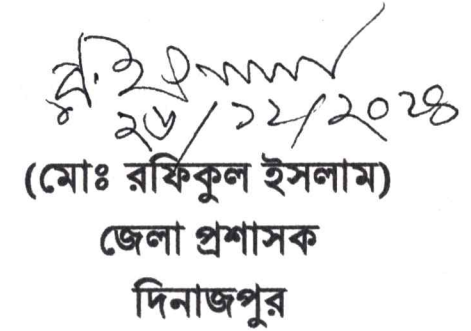 র. ইসলাম
২৬/১২/২০২৪
(মোঃ রফিকুল ইসলাম)
জেলা প্রশাসক
দিনাজপুর